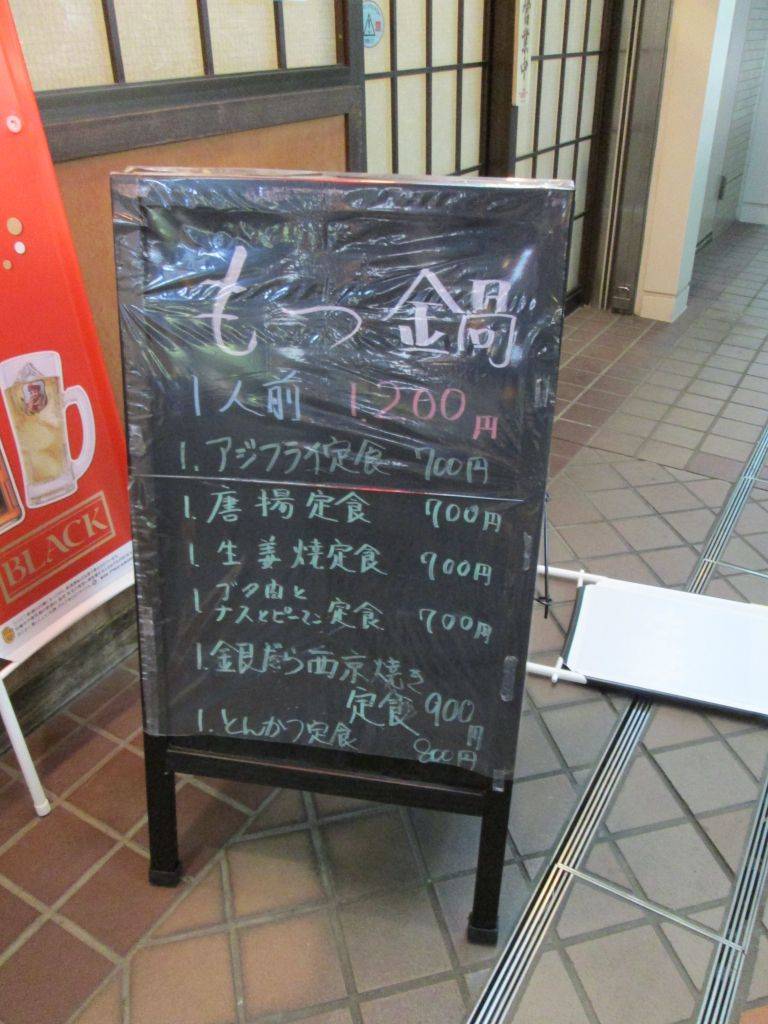 営業中
もつ鍋
1人前 1,200円
1.アジフライ定食 700円
1.唐揚定食 700円
1.生姜焼定食 700円
1.ブタ肉と
ナスとピーマン定食 700円
1.銀だら西京焼き
定食 900円
1.とんかつ定食 800円
BLACK